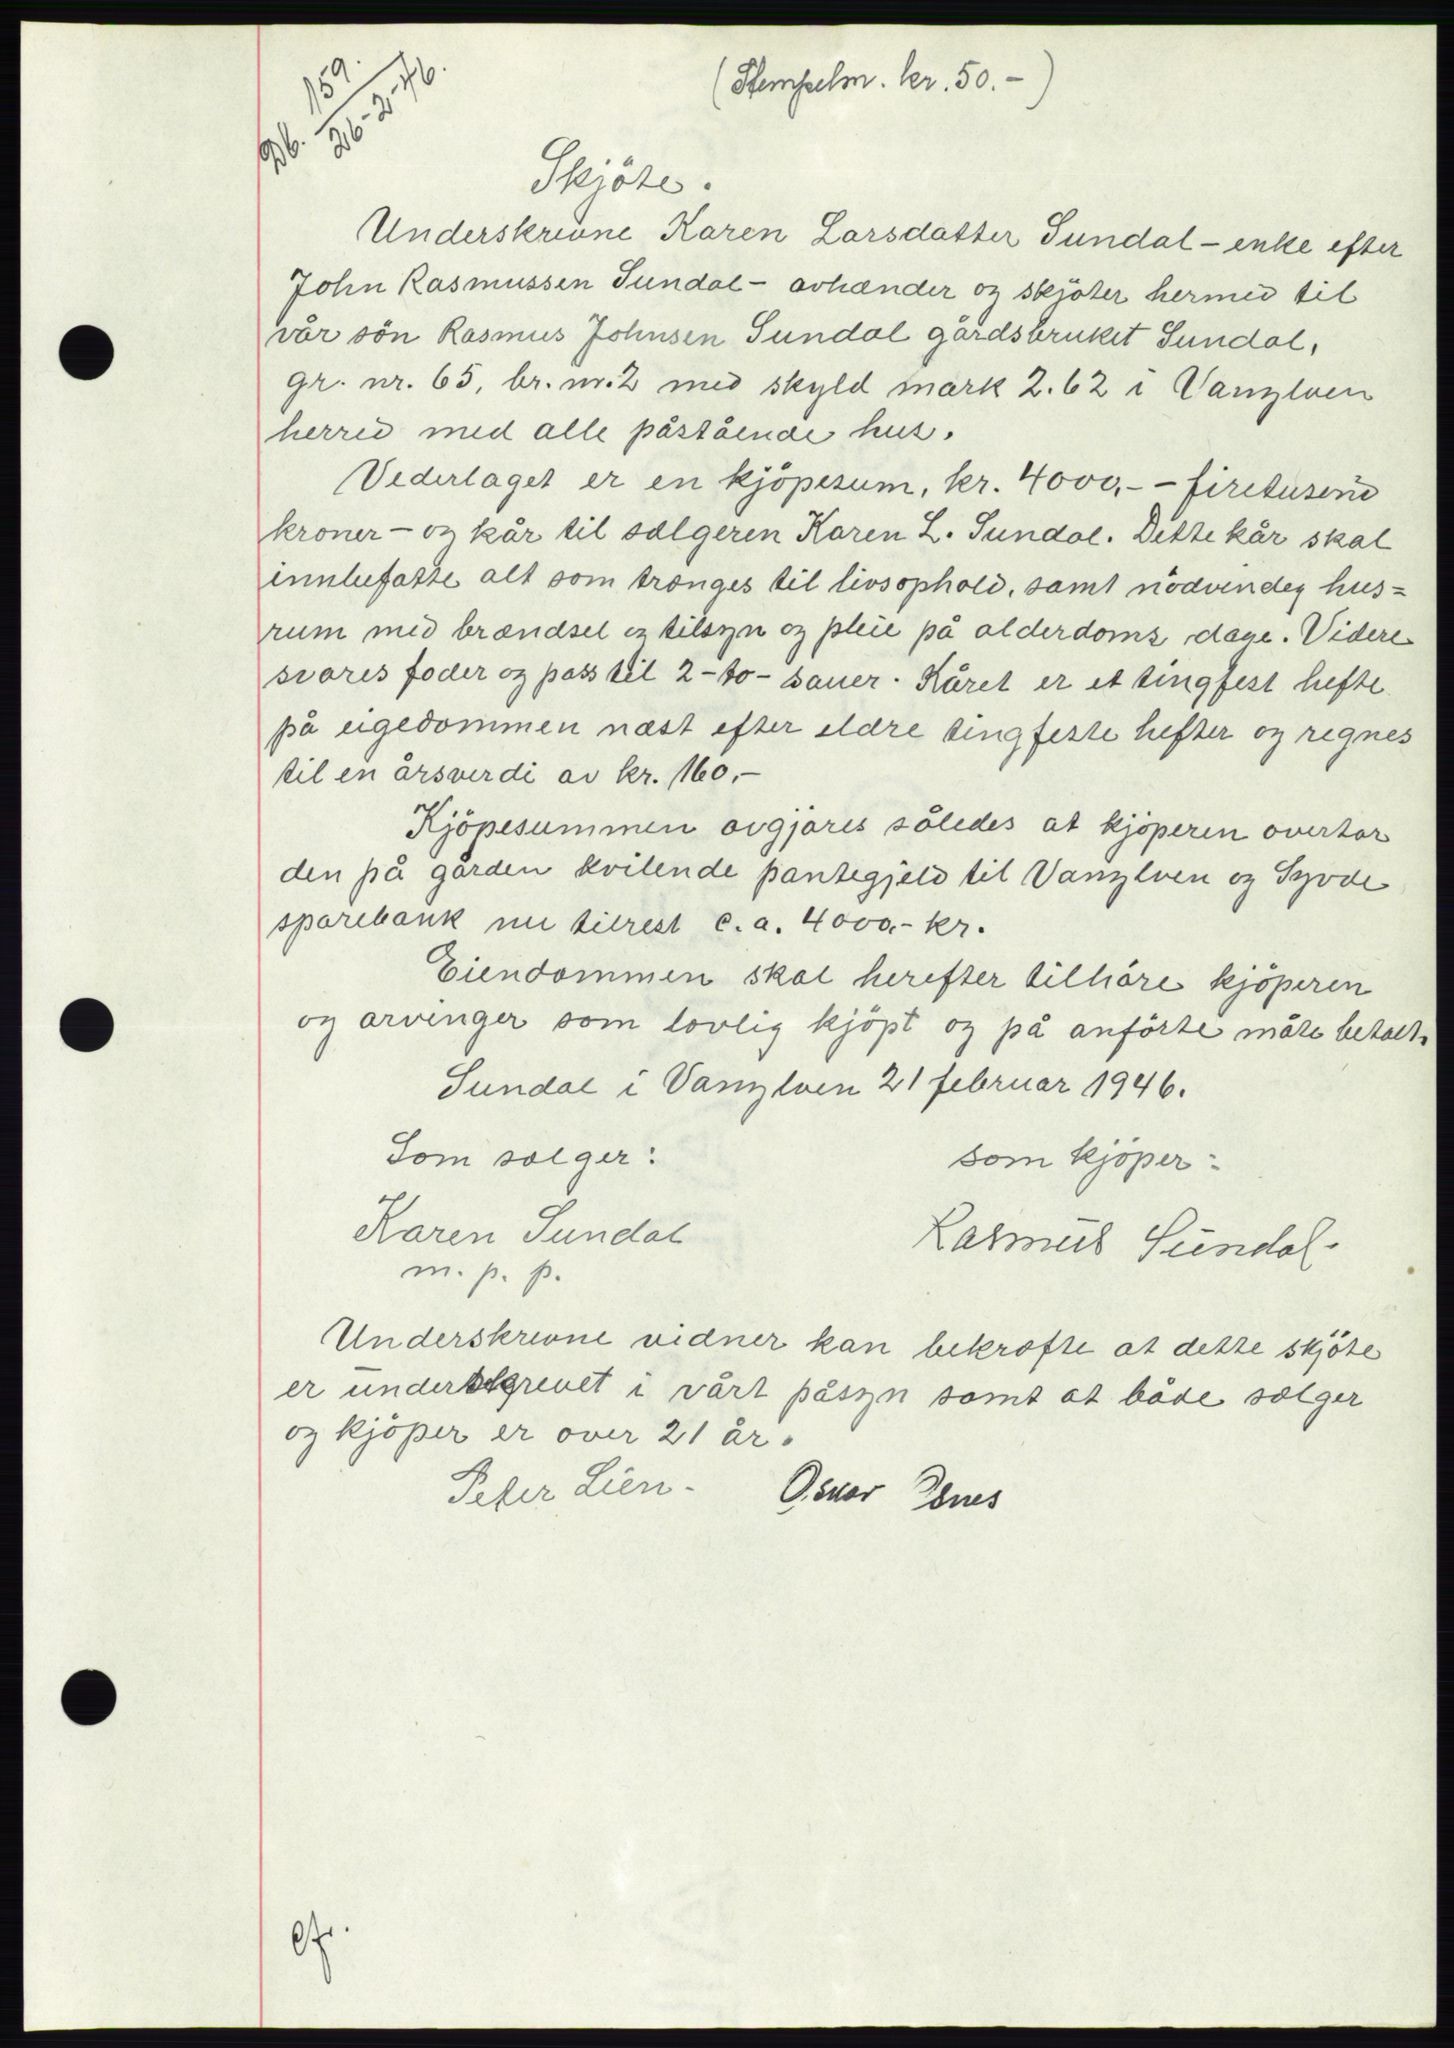 Db. 159.
26-2-46.
(Stempelm. kr. 50.-)
Skjöte.
Underskrevne Karen Larsdatter Sundal - enke efter
John Rasmussen Sundal - avhænder og skjöter hermed til
vår sön Rasmus Johnsen Sundal gårdsbruket Sundal,
gr. nr. 65, br. nr. 2 med skyld mark 2.62 i Vanylven
herred med alle påstående hus.
Vederlaget er en kjöpesum, kr. 4000,- - firetusend
kroner - og kår til sælgeren Karen L. Sundal. Dette kår skal
innbefatte alt som trænges til livsophold, samt nödvendig hus=
rum med brændsel og tilsyn og pleie på alderdoms dage. Videre
svares foder og pass til 2 - to - sauer. Kåret er et tingfest hefte
på eigedommen næst efter eldre tingfeste hefter og regnes
til en årsverdi av kr. 160.-
Kjöpesummen avgjøres således at kjöperen overtar
den på gården kvilende pantegjeld til Vanylven og Syvde
sparebank nu tilrest c.a. 4000,- kr.
Eiendommen skal herefter tilhöre kjöperen
og arvinger som lovlig kjöpt og på anförte måte betalt.
Sundal i Vanylven 21 februar 1946.
Som sælger:
som kjöper:
Karen Sundal
m. p. p.
Rasmus Sundal.
Underskrevne vidner kan bekræfte at dette skjöte
er underskrevet i vårt påsyn samt at både sælger
og kjöper er over 21 år.
Peter Lien. Oskar